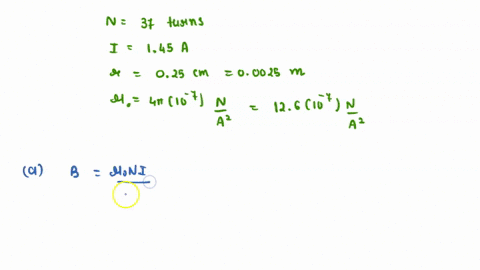 N = 37 turns
I = 1.45 A
r = 0.25 cm = 0.0025 m
μ₀ = 4π(10⁻⁷) N/A² = 12.6(10⁻⁷) N/A²
(a) B = μ₀NI